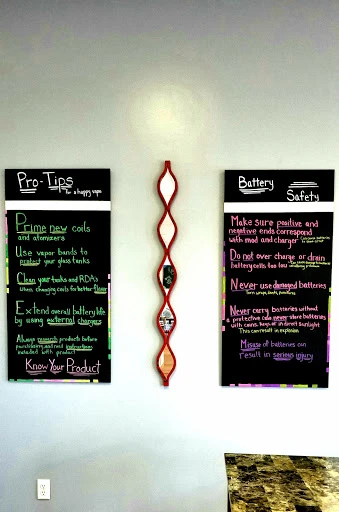 Pro-Tips
for a happy vape
Prime new coils
and atomizers
Use vapor bands to
protect your glass tanks
Clean your tanks and RDA's
when changing coils for better flavor
Extend overall battery life
by using external chargers
Always research products before
purchasing and read instructions
included with product
Know Your Product
Battery
Safety
Make sure positive and
negative ends correspond
with mod and charger
Do not over charge or drain
battery cells too low
Never use damaged batteries
Torn wraps, dents, punctures
Never carry batteries without
a protective case never store batteries
with coins, keys, or in direct sunlight
This can result in explosion
Misuse of batteries can
result in serious injury